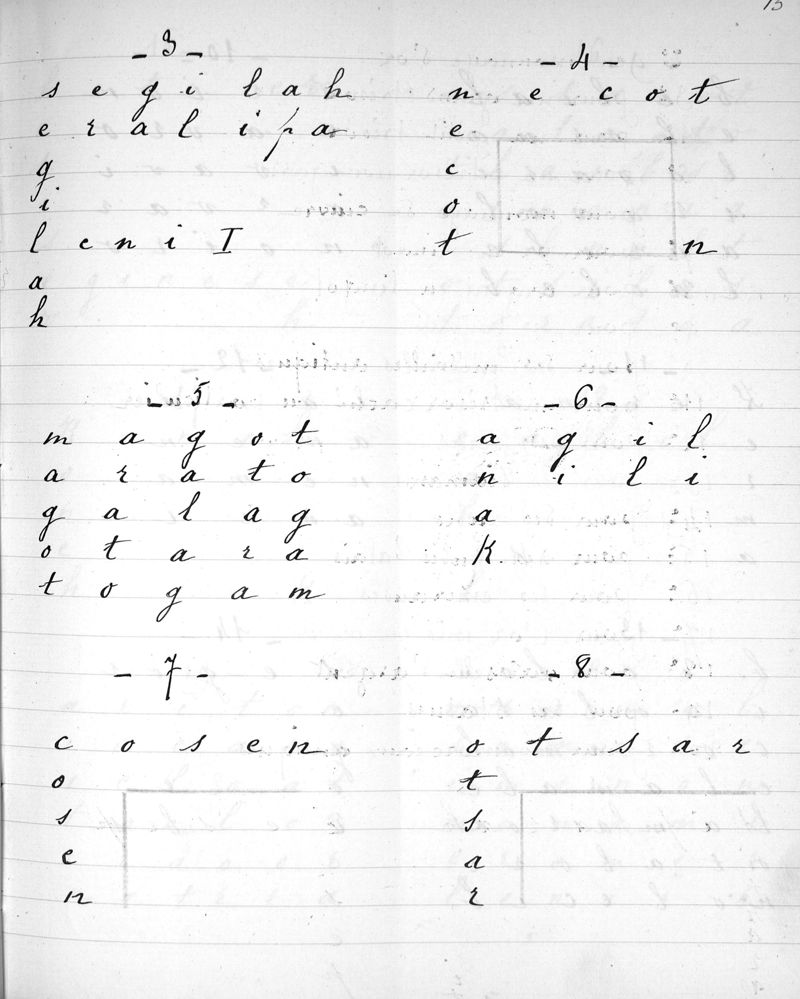 15
- 3 -
s e g i l a h
e r a l i p a
g
i
l e n i I
a
h
- 4 -
n e c o t
e
c
o
t n
- 5 -
m a g o t
a r a t o
g a l a g
o t a r a
t o g a m
- 6 -
a g i l
n i l i
a
K
- 7 -
c o s e n
o
s
e
n
- 8 -
o t s a r
t
s
a
r